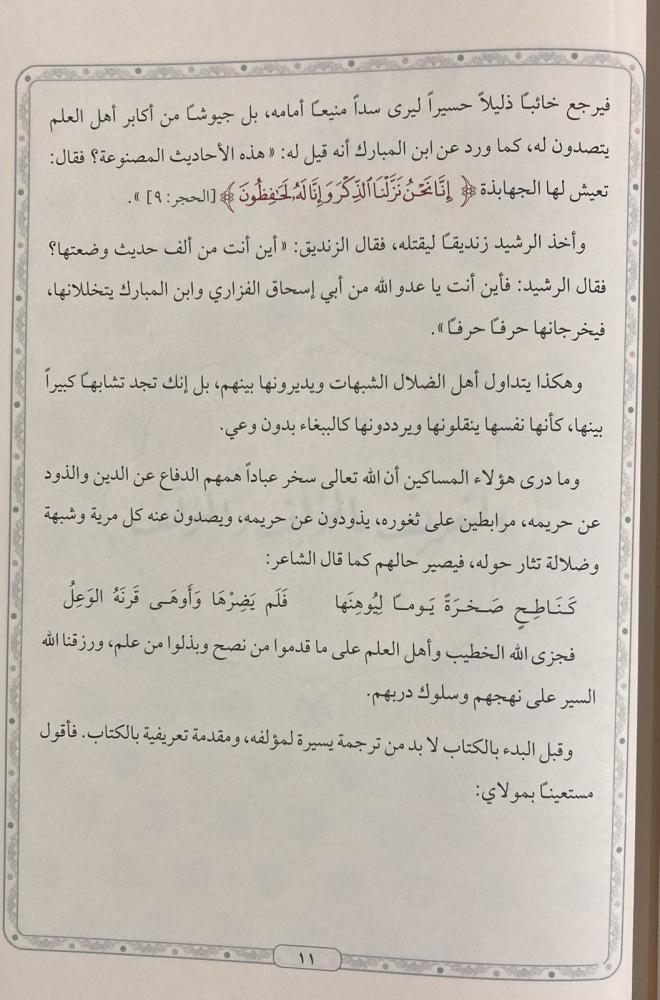 فيرجع خائبـًا ذليلاً حسيراً ليرى سداً منيعـًا أمامه، بل جيوشـًا من أكابر أهل العلم
يتصدون له، كما ورد عن ابن المبارك أنه قيل له: «هذه الأحاديث المصنوعة؟ فقال:
تعيش لها الجهابذة ﴿ إِنَّا نَحْنُ نَزَّلْنَا ٱلذِّكْرَ وَإِنَّا لَهُۥ لَحَٰفِظُونَ ﴾ [الحجر: ٩] ».
وأخذ الرشيد زنديقـًا ليقتله، فقال الزنديق: «أين أنت من ألف حديث وضعتها؟
فقال الرشيد: فأين أنت يا عدو الله من أبي إسحاق الفزاري وابن المبارك يتخللانها،
فيخرجانها حرفـًا حرفـًا».
وهكذا يتداول أهل الضلال الشبهات ويديرونها بينهم، بل إنك تجد تشابهـًا كبيراً
بينها، كأنها نفسها ينقلونها ويرددونها كالببغاء بدون وعي.
وما درى هؤلاء المساكين أن الله تعالى سخر عباداً همهم الدفاع عن الدين والذود
عن حريمه، مرابطين على ثغوره، يذودون عن حريمه، ويصدون عنه كل مرية وشبهة
وضلالة تثار حوله، فيصير حالهم كما قال الشاعر:
كَـنَـاطِـحٍ صَـخـرَةً يَـومـًا لِيُوهِنَها فَلَم يَضِرْهَا وَأَوهَـى قَرنَهُ الوَعِلُ
فجزى الله الخطيب وأهل العلم على ما قدموا من نصح وبذلوا من علم، ورزقنا الله
السير على نهجهم وسلوك دربهم.
وقبل البدء بالكتاب لا بد من ترجمة يسيرة لمؤلفه، ومقدمة تعريفية بالكتاب. فأقول
مستعينـًا بمولاي:
١١